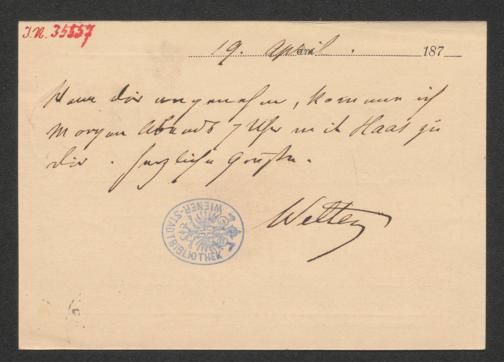 J.N. 35557
19. April 187
Wenn dir angenehm, komme ich
morgen Abends 7 Uhr mit Haas zu
dir. Herzliche Grüße.
Welten
WIENER-STADTBIBLIOTHEK